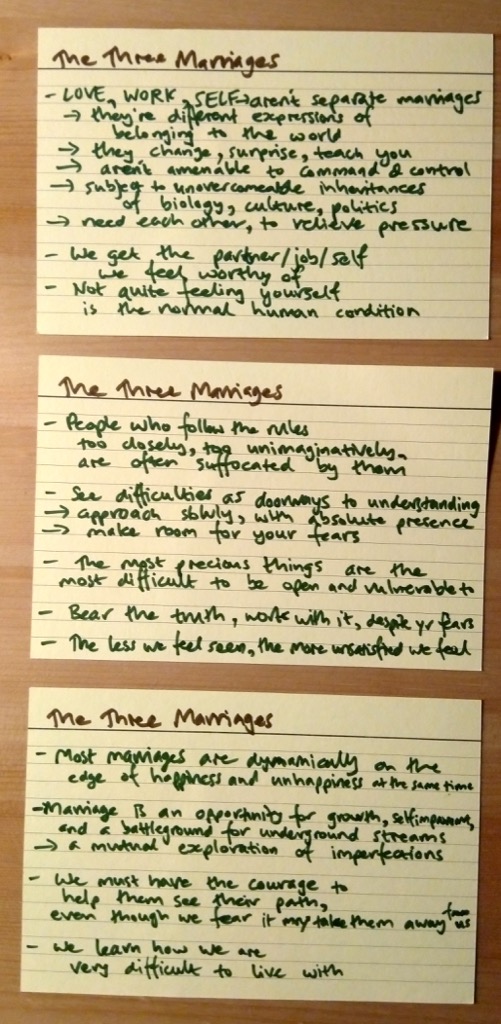 The Three Marriages
- LOVE, WORK, SELF → aren't separate marriages
→ they're different expressions of
belonging to the world
→ they change, surprise, teach you
→ aren't amenable to command & control
→ subject to unovercomeable inheritances
of biology, culture, politics
→ need each other, to relieve pressure
- We get the partner/job/self
we feel worthy of
- Not quite feeling yourself
is the normal human condition
The Three Marriages
- People who follow the rules
too closely, too unimaginatively,
are often suffocated by them
- See difficulties as doorways to understanding
→ approach slowly, with absolute presence
→ make room for your fears
- The most precious things are the
most difficult to be open and vulnerable to
- Bear the truth, work with it, despite yr fears
- The less we feel seen, the more unsatisfied we feel
The Three Marriages
- Most marriages are dynamically on the
edge of happiness and unhappiness at the same time
- Marriage is an opportunity for growth, self improvement,
and a battleground for underground streams
→ a mutual exploration of imperfections
- We must have the courage to
help them see their path,
even though we fear it may take them away from us
- We learn how we are
very difficult to live with